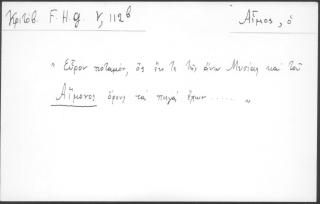 Κριτόβ. F.H.G. V, 112β
Αἷμος, ὁ
„ Εὗρον ποταμόν, ὃς ἐκ τε τῆς ἄνω Μυσίας καὶ τοῦ
Αἵμονος ὄρους τὰς πηγὰς ἔχων ..... „